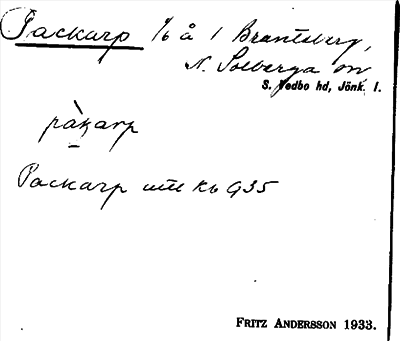 Packarp 1/6 å 1 Brantsberg,
N. Solberga sn
S. Vedbo hd, Jönk. l.
pàkarp
Packarp utt Kb G35
FRITZ ANDERSSON 1933.